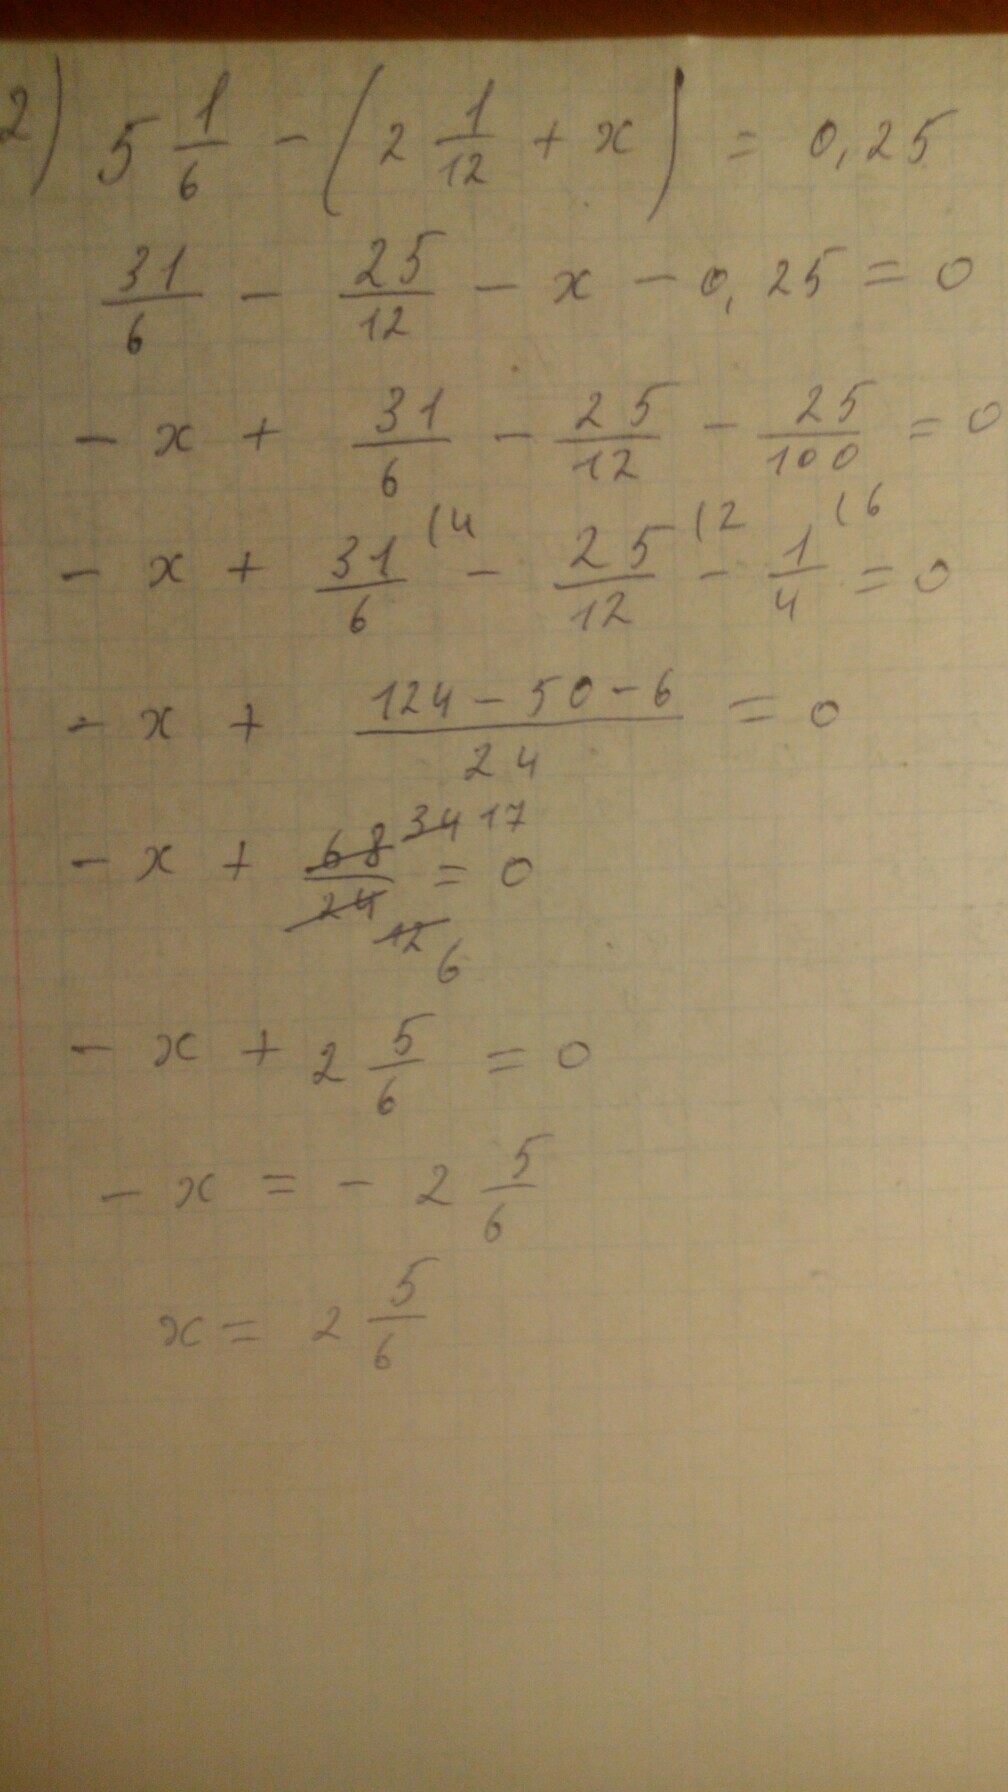 2) 5 1/6 - (2 1/12 + x) = 0,25
31/6 - 25/12 - x - 0,25 = 0
- x + 31/6 - 25/12 - 25/100 = 0
- x + 31/6 (4 - 25/12 (2 - 1/4 (6 = 0
- x + 124 - 50 - 6 / 24 = 0
- x + 68/24 34/12 17/6 = 0
- x + 2 5/6 = 0
- x = - 2 5/6
x = 2 5/6